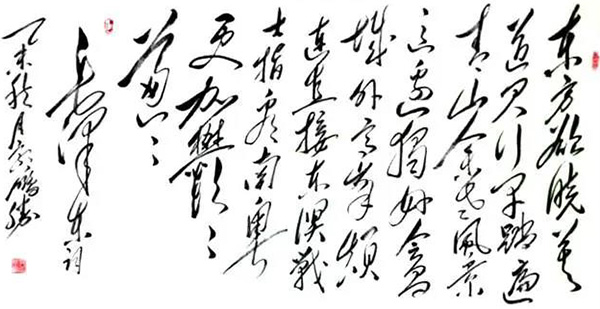 东方欲晓莫
道君行早踏遍
青山人未老风景
这边独好会昌
城外高峰颠
连直接东溟战
士指看南粤
更加鬱々
葱々
毛泽东词
乙未秋月